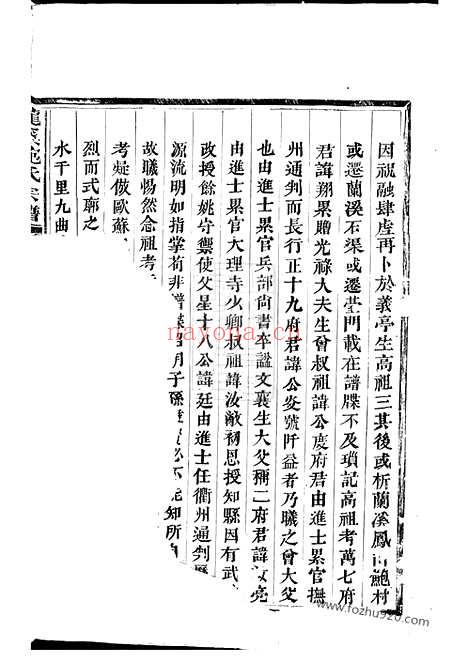 因祝融肆虐再卜於義亭生高祖三其後或析蘭溪鳳山鮑村
或遷蘭溪石渠或遷塋門載在譜牒不及瑣記高祖考萬七府
君諱翔累贈光祿大夫生曾叔祖諱公度府君由進士累官撫
州通判而長行正十九府君諱公姿號阡益者乃曦之曾大父
也由進士累官兵部尚書卒謚文襄生大父稱二府君諱汝亮
由進士累官大理寺少卿叔祖諱汝敵初恩授知縣因有武
政授餘姚守禦使父星十八公諱廷由進士任衢州通判
源流明如指掌苟非譜 明子孫 知所自
故曦惕然念祖考
考疑倣歐蘇
烈而式廓之
水千里九曲
龍溪范氏宗譜
nayona.cn
www.fozhu920.com